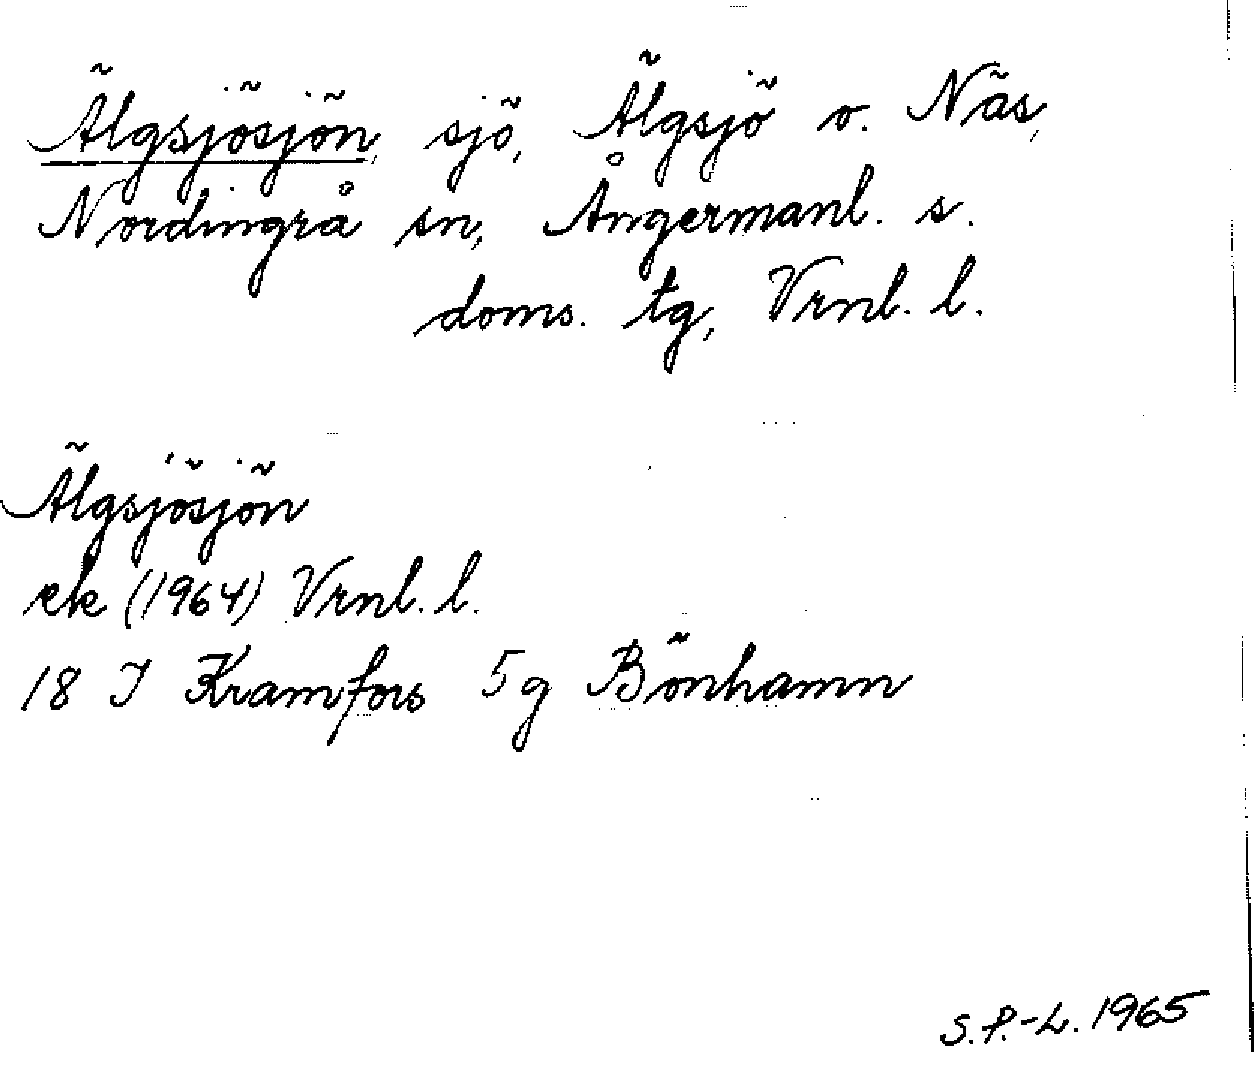 Älgsjösjön, sjö, Älgsjö o. Näs,
Nordingrå sn, Ångermanl. s.
doms. tg, Vrnl. l.
Älgsjösjön
ek (1964) Vrnl. l.
18 I Kramfors 5g Bönhamn
S.P.-L. 1965